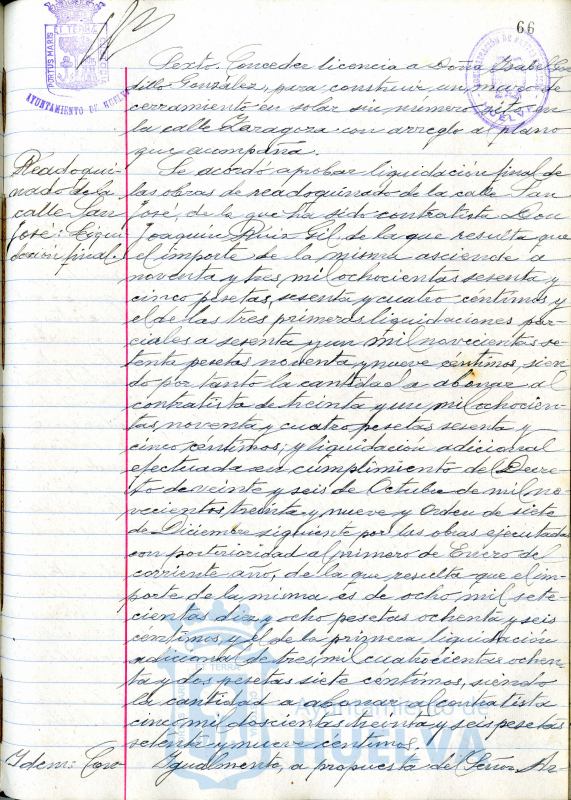 66
PORTUS MARIS
AYUNTAMIENTO DE HUELVA
Sexto. Conceder licencia a Doña Isabel
González, para construir un muro de
cerramiento en solar sin número, sito en
la calle Zaragoza con arreglo al plano
que acompaña.
Readoqui-
nado de la
calle San
José: Liqui-
dación final.
Se acordó aprobar liquidación final de
las obras de readoquinado de la calle San
José, de la que ha sido contratista Don
Joaquín Ruiz Gil, de la que resulta que
el importe de la misma asciende a
noventa y tres mil ochocientas sesenta y
cinco pesetas, sesenta y cuatro céntimos y
el de las tres primeras liquidaciones par-
ciales a sesenta y un mil novecientas se-
tenta pesetas noventa y nueve céntimos, sien-
do por tanto la cantidad a abonar al
contratista de treinta y un mil ochocien-
tas, noventa y cuatro pesetas sesenta y
cinco céntimos; y liquidación adicional
efectuada en cumplimiento del Decre-
to de veinte y seis de Octubre de mil no-
vecientos treinta y nueve y Orden de siete
de Diciembre siguiente por las obras ejecutadas
con posterioridad al primero de Enero del
corriente año, de la que resulta que el im-
porte de la misma es de ocho mil sete-
cientas diez y ocho pesetas ochenta y seis
céntimos y el de la primera liquidación
adicional de tres mil cuatrocientas ochen-
ta y dos pesetas siete céntimos, siendo
la cantidad a abonar al contratista
cinco mil doscientas treinta y seis pesetas
setenta y nueve céntimos.
Ayuntamiento de
HUELVA
Idem:
Igualmente, a propuesta del Señor Ar-